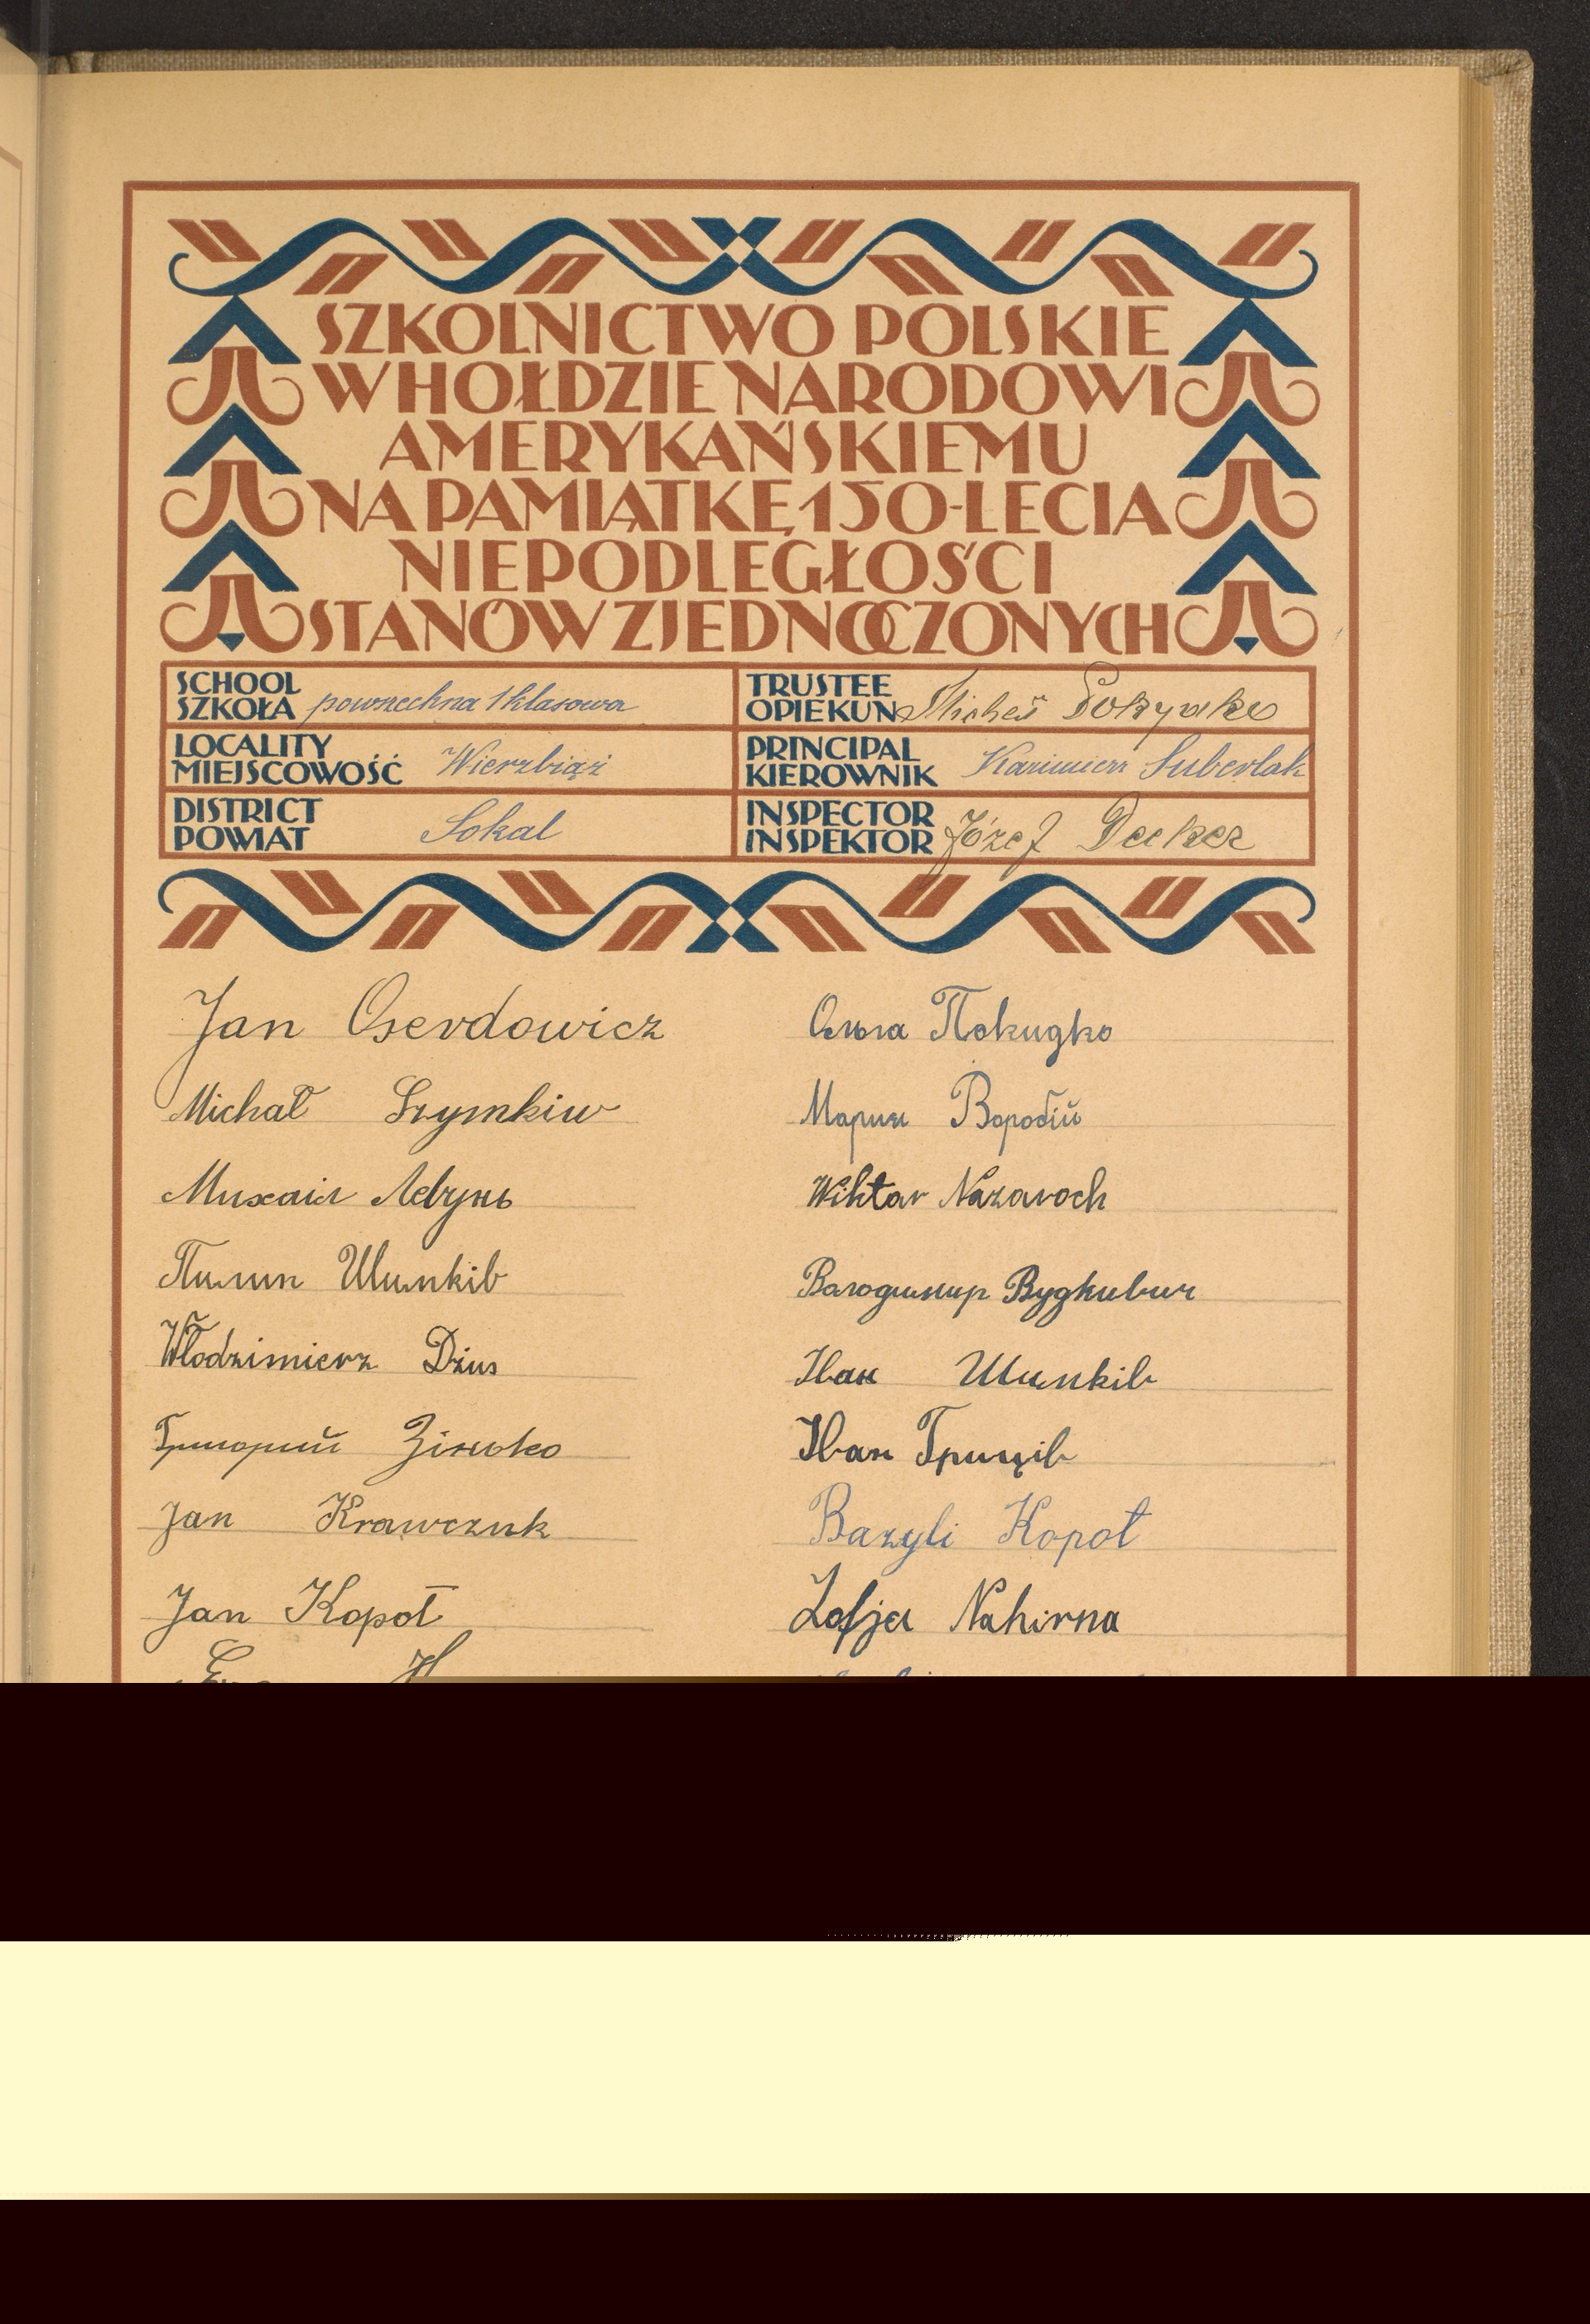 SZKOLNICTWO POLSKIE
W HOŁDZIE NARODOWI
AMERYKAŃSKIEMU
NA PAMIĄTKĘ 150-LECIA
NIEPODLEGŁOŚCI
STANÓW ZJEDNOCZONYCH
SCHOOL
SZKOŁA powszechna 1 klasowa
TRUSTEE
OPIEKUN
LOCALITY
MIEJSCOWOŚĆ Wierzbiąż
PRINCIPAL
KIEROWNIK Kazimierz Suberlak
DISTRICT
POWIAT Sokal
INSPECTOR
INSPEKTOR Józef Decker
Jan Oserdowicz
Michał Szymkiw
Михаіл Левунь
Пилип Шимків
Włodzimierz Dzius
Григорий
Jan Krawczuk
Jan Kopot
Ольга Покидко
Мария Воробій
Wiktor Nazaroch
Володимир Будкевич
Іван Шимків
Іван Гриців
Bazyli Kopot
Zofja Nahirna